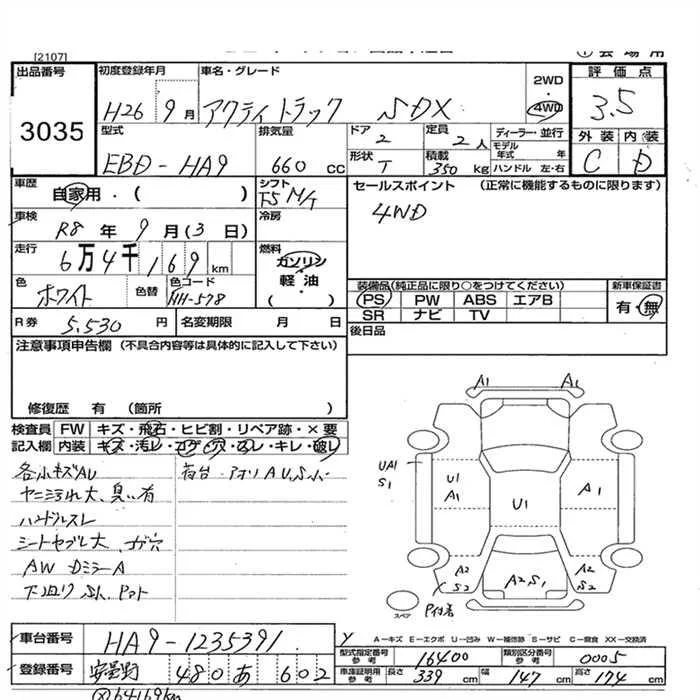 [2107]
① 会場用
出品番号
3035
初度登録年月
H26 9月
車名・グレード
アクティトラック SDX
2WD
・
4WD
評価点
3.5
外装 内装
C D
型式
EBD-HA9
排気量
660 cc
ドア
2
定員
2人
ディーラー・並行
モデル年式 年
形状
T
積載
350 kg
ハンドル 左・右
車歴
自家用・( )
シフト
F5 M/T
セールスポイント (正常に機能するものに限ります)
4WD
車検
R8年 9月(3日)
冷房
走行
6万4千169km
燃料
ガソリン
軽油
( )
色
ホワイト
色替
色コード
NH-578
装備品(純正品に限り○をつけてください) 新車保証書
PS PW ABS エアB 有・無
SR ナビ TV
R券 5,530 円
名変期限 月 日
後日品
注意事項申告欄 (不具合内容等は具体的に記入して下さい)
修復歴 有 (箇所 )
検査員 FW キズ・飛石・ヒビ割・リペア跡・×要
記入欄 内装 キズ・汚レ・コゲ・穴・スレ・キレ・破レ
各小キズAU
ヤニ汚れ大、臭い有
ハンドルスレ
AW DミラーA
荷台・アオリ AU.S小
A1 A1
UA1
S1
U1
A1
U1
A1
A2
S2
A2S1
A2
S2
スペア
A-キズ E-エクボ U-凹ミ W-補修跡 S-サビ C-腐食 XX-交換済
車台番号
HA9-1235391
型式指定番号
参考
16400
類別区分番号
参考
0005
登録番号
安曇野 480 あ 602
車庫証明用
参考
長さ 339 cm 幅 147 cm 高さ 174 cm
64169km